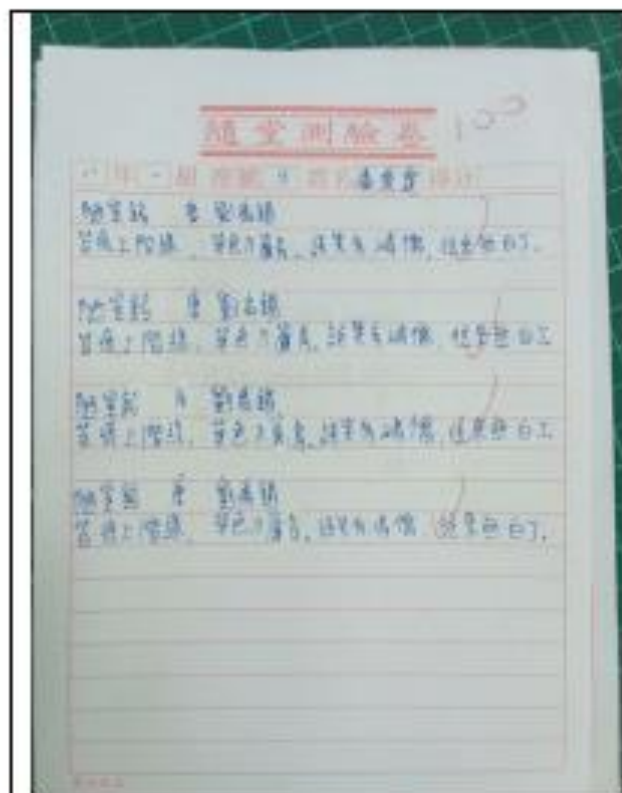 隨堂測驗卷 100
年 班 座號 姓名 得分
陋室銘 唐 劉禹錫
苔痕上階綠,草色入簾青,談笑有鴻儒,往來無白丁。
陋室銘 唐 劉禹錫
苔痕上階綠,草色入簾青,談笑有鴻儒,往來無白丁
陋室銘 唐 劉禹錫
苔痕上階綠,草色入簾青,談笑有鴻儒,往來無白丁
陋室銘 唐 劉禹錫
苔痕上階綠,草色入簾青,談笑有鴻儒,往來無白丁。